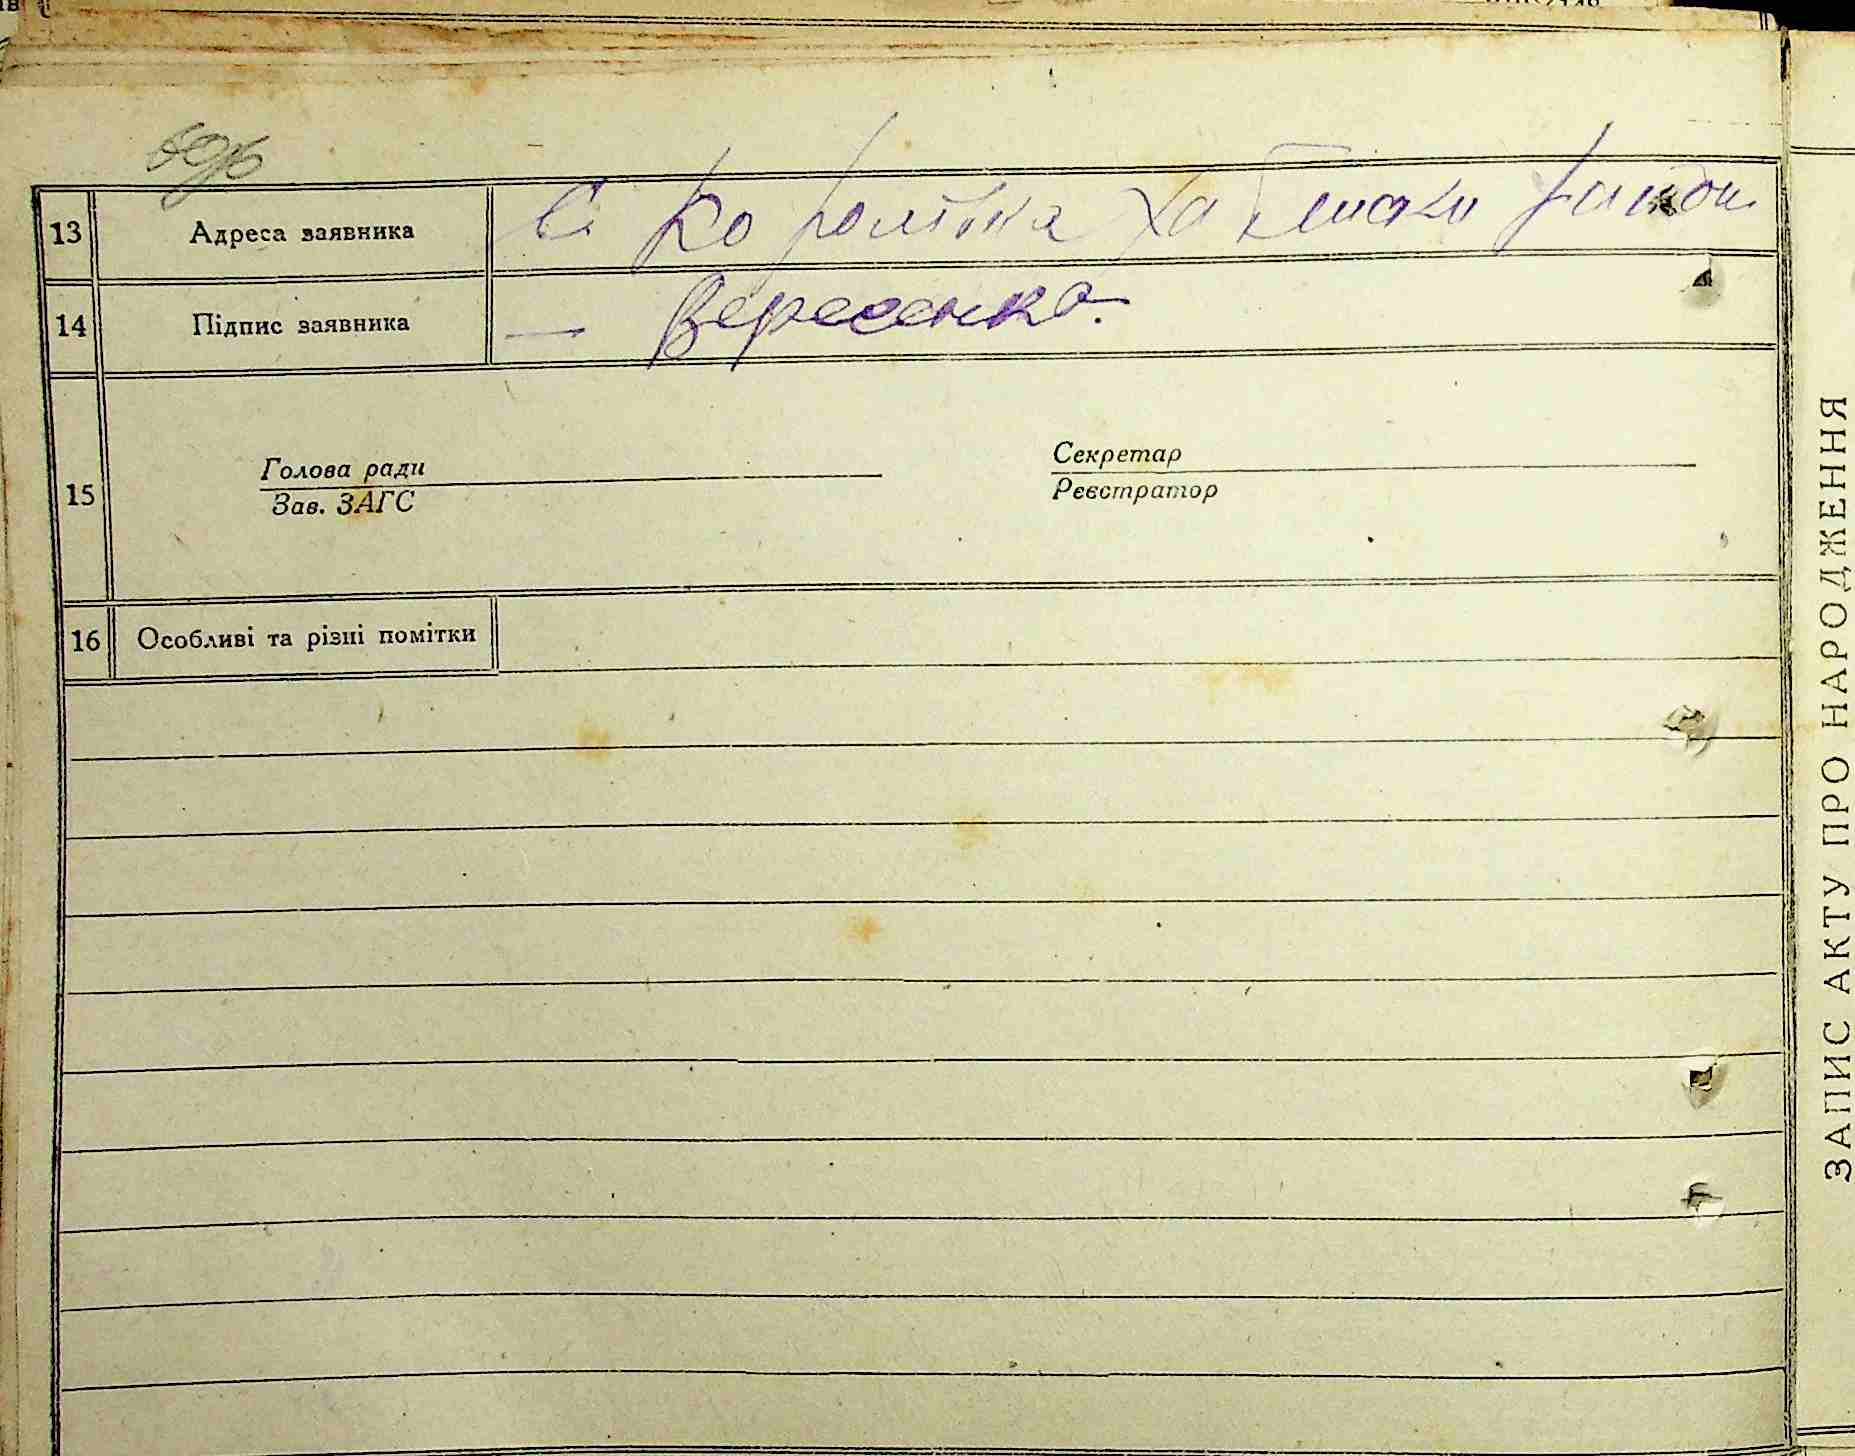 13 Адреса заявника С. Королівка
14 Підпис заявника — Вересенко.
15 Голова ради Секретар
Зав. ЗАГС Реєстратор
16 Особливі та різні помітки
ЗАПИС АКТУ ПРО НАРОДЖЕННЯ